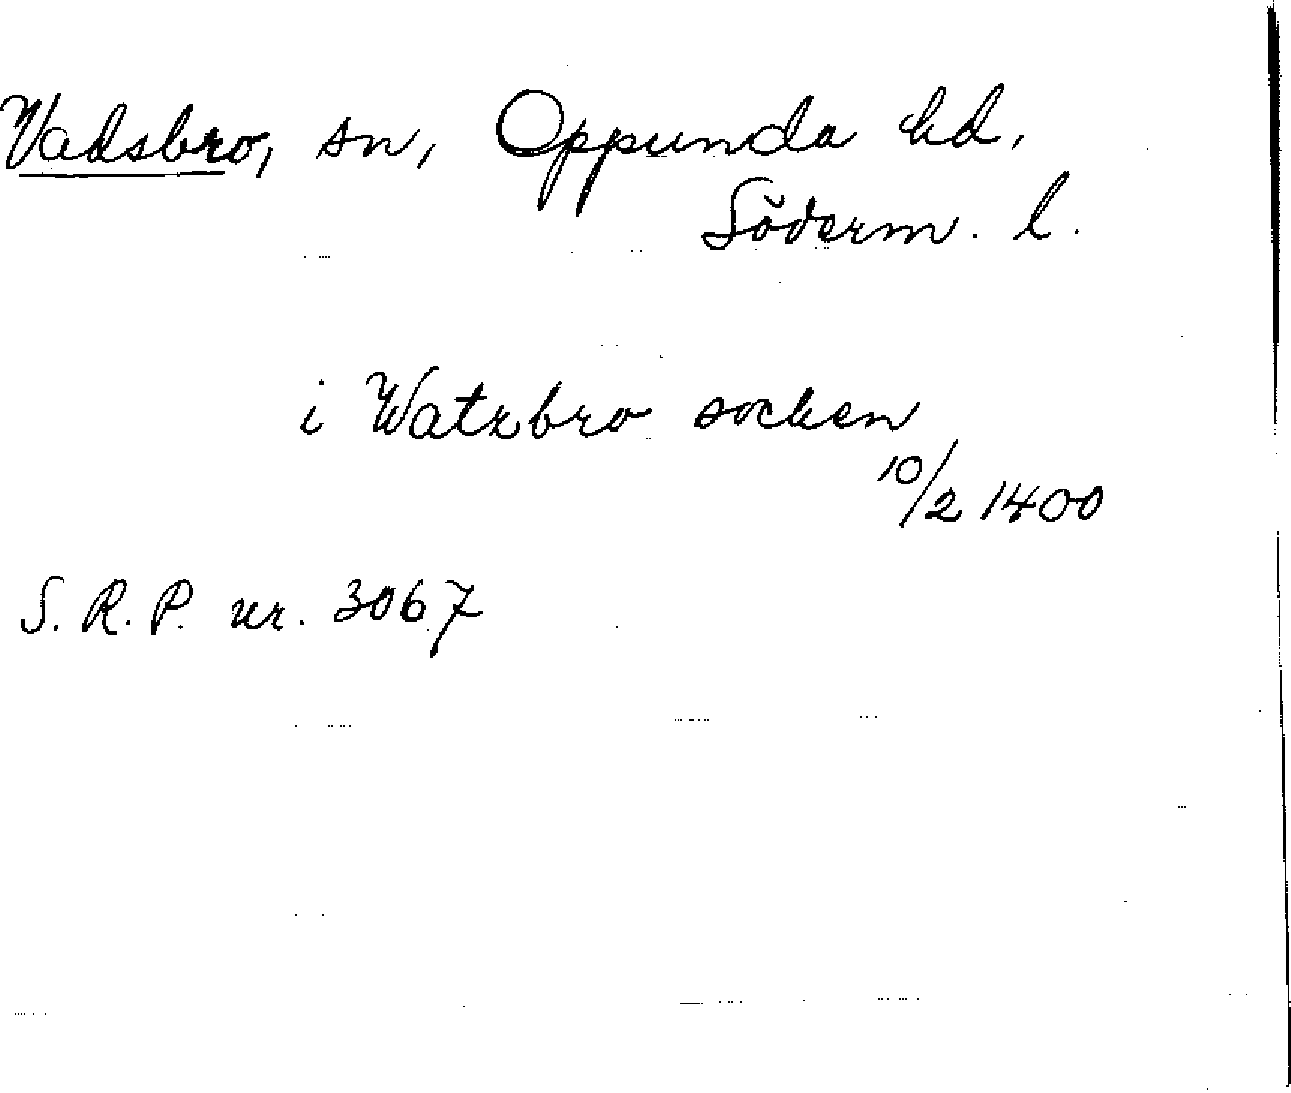 Vadsbro, sn, Oppunda hd,
Söderm. l.
i Watzbro socken
10/2 1400
S. R. P. nr. 3067